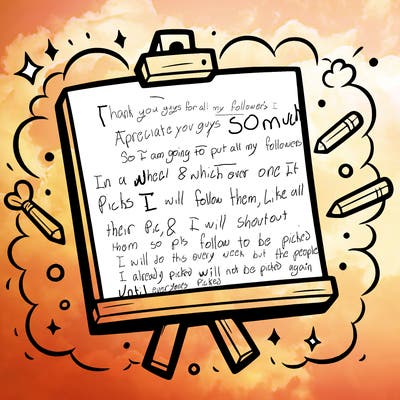 Thank you guys for all my followers I
Apreciate you guys SO much
So I am going to put all my followers
In a wheel & which ever one It
Picks I will follow them, Like all
their Pic, & I will shoutout
them so pls follow to be picked
I will do this every week but the people
I already picked will not be picked again
Until everyones Picked